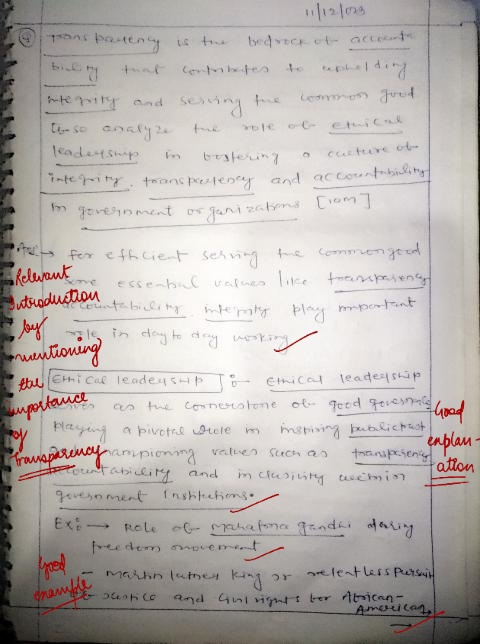 11/12/023
④ Transparency is the bedrock of accounta-
bility that contributes to upholding
integrity and serving the common good
Also analyze the role of ethical
leadership in fostering a culture of
integrity, transparency and accountability
in government organizations [10M]
Ans → For efficient serving the common good
some essential values like transparency
accountability, integrity play important
role in day to day working
Relevant
introduction
by
mentioning
the
importance
of
Transparency
Ethical leadership :- ethical leadership
serves as the cornerstone of good governance
playing a pivotal role in inspiring public trust
championing values such as transparency
accountability and inclusivity within
government institutions.
Good
explan-
ation
Ex: → Role of Mahatma Gandhi during
freedom movement
- Martin Luther King Jr relentless pursuit
of justice and civil rights for African-
American
Good
example